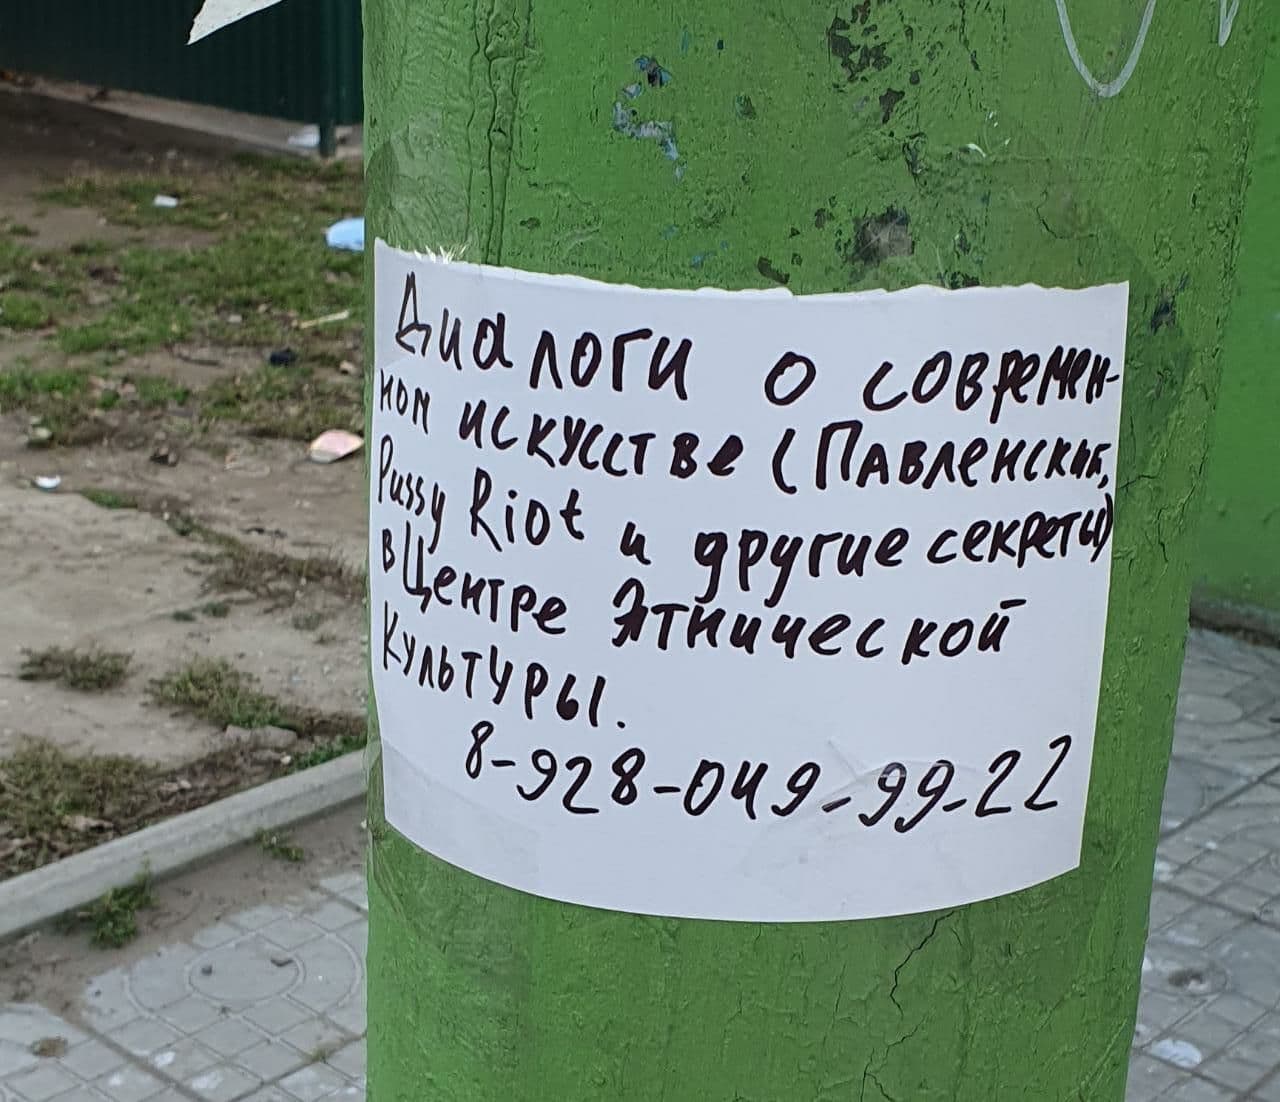 Диалоги о современ-
ном искусстве (Павленский,
Pussy Riot и другие секреты)
в Центре Этнической
Культуры.
8-928-049-99-22